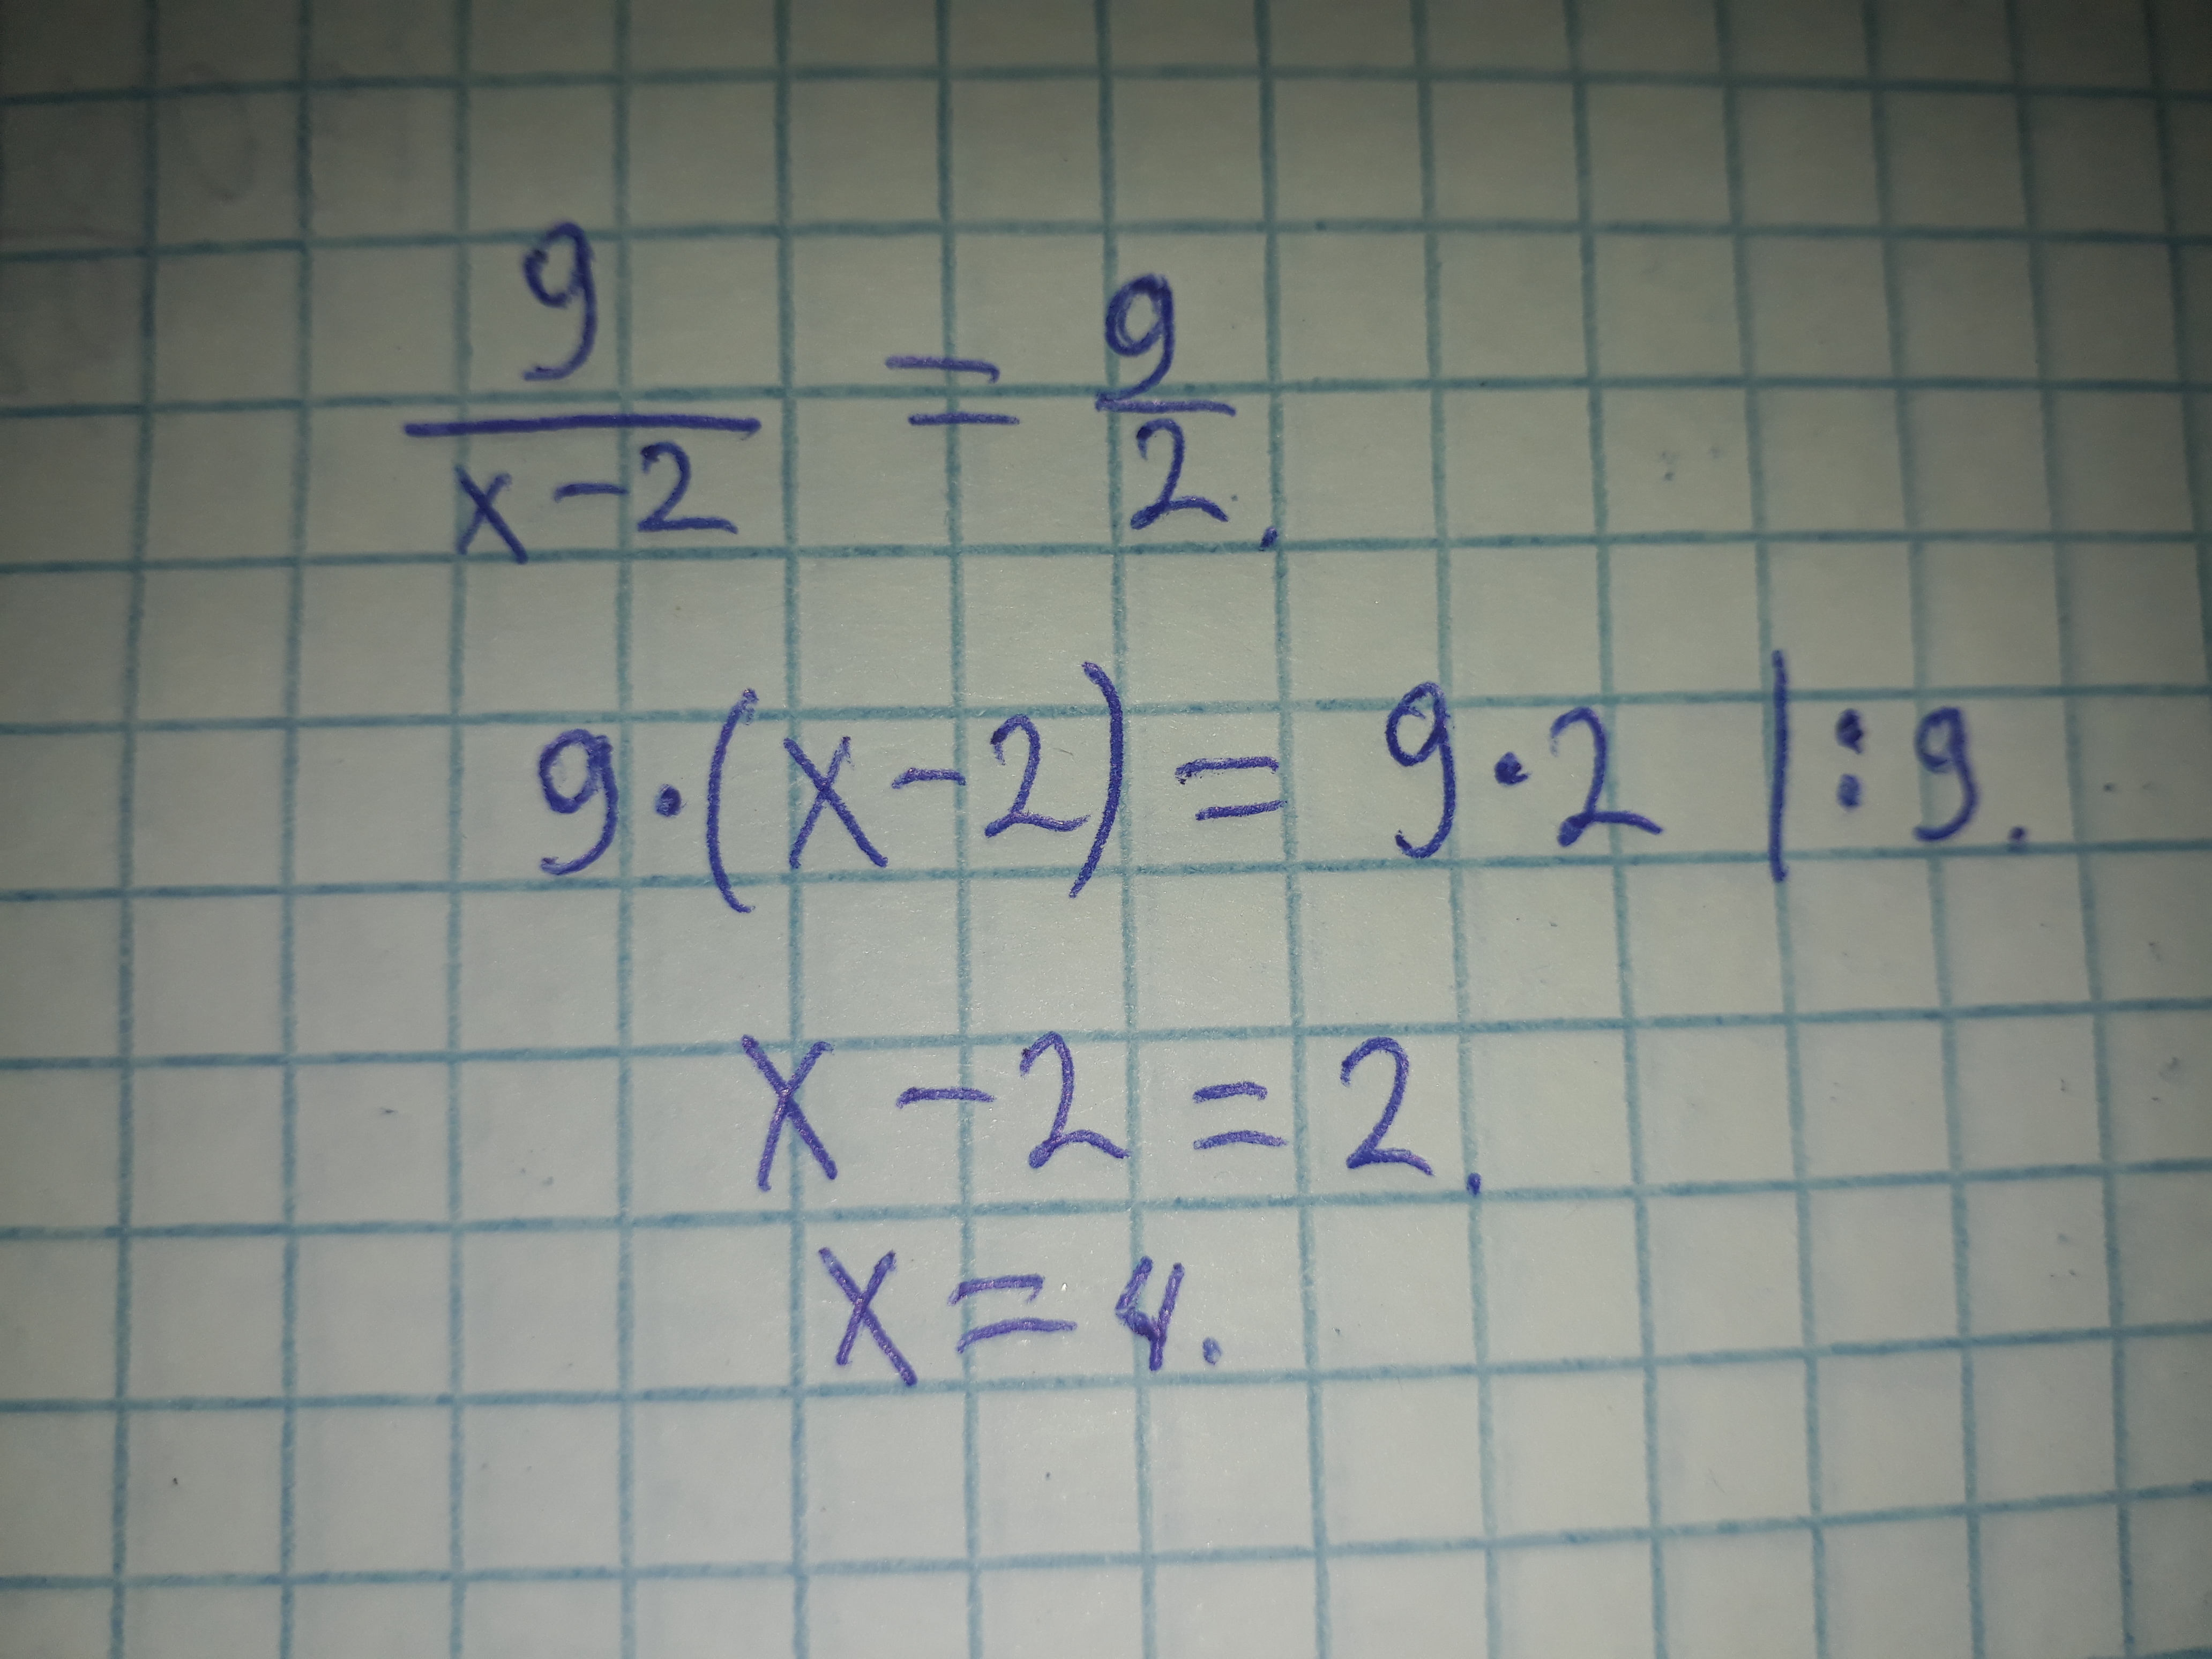 9/(x-2) = 9/2.
9·(x-2) = 9·2 |:9.
x-2=2.
x=4.